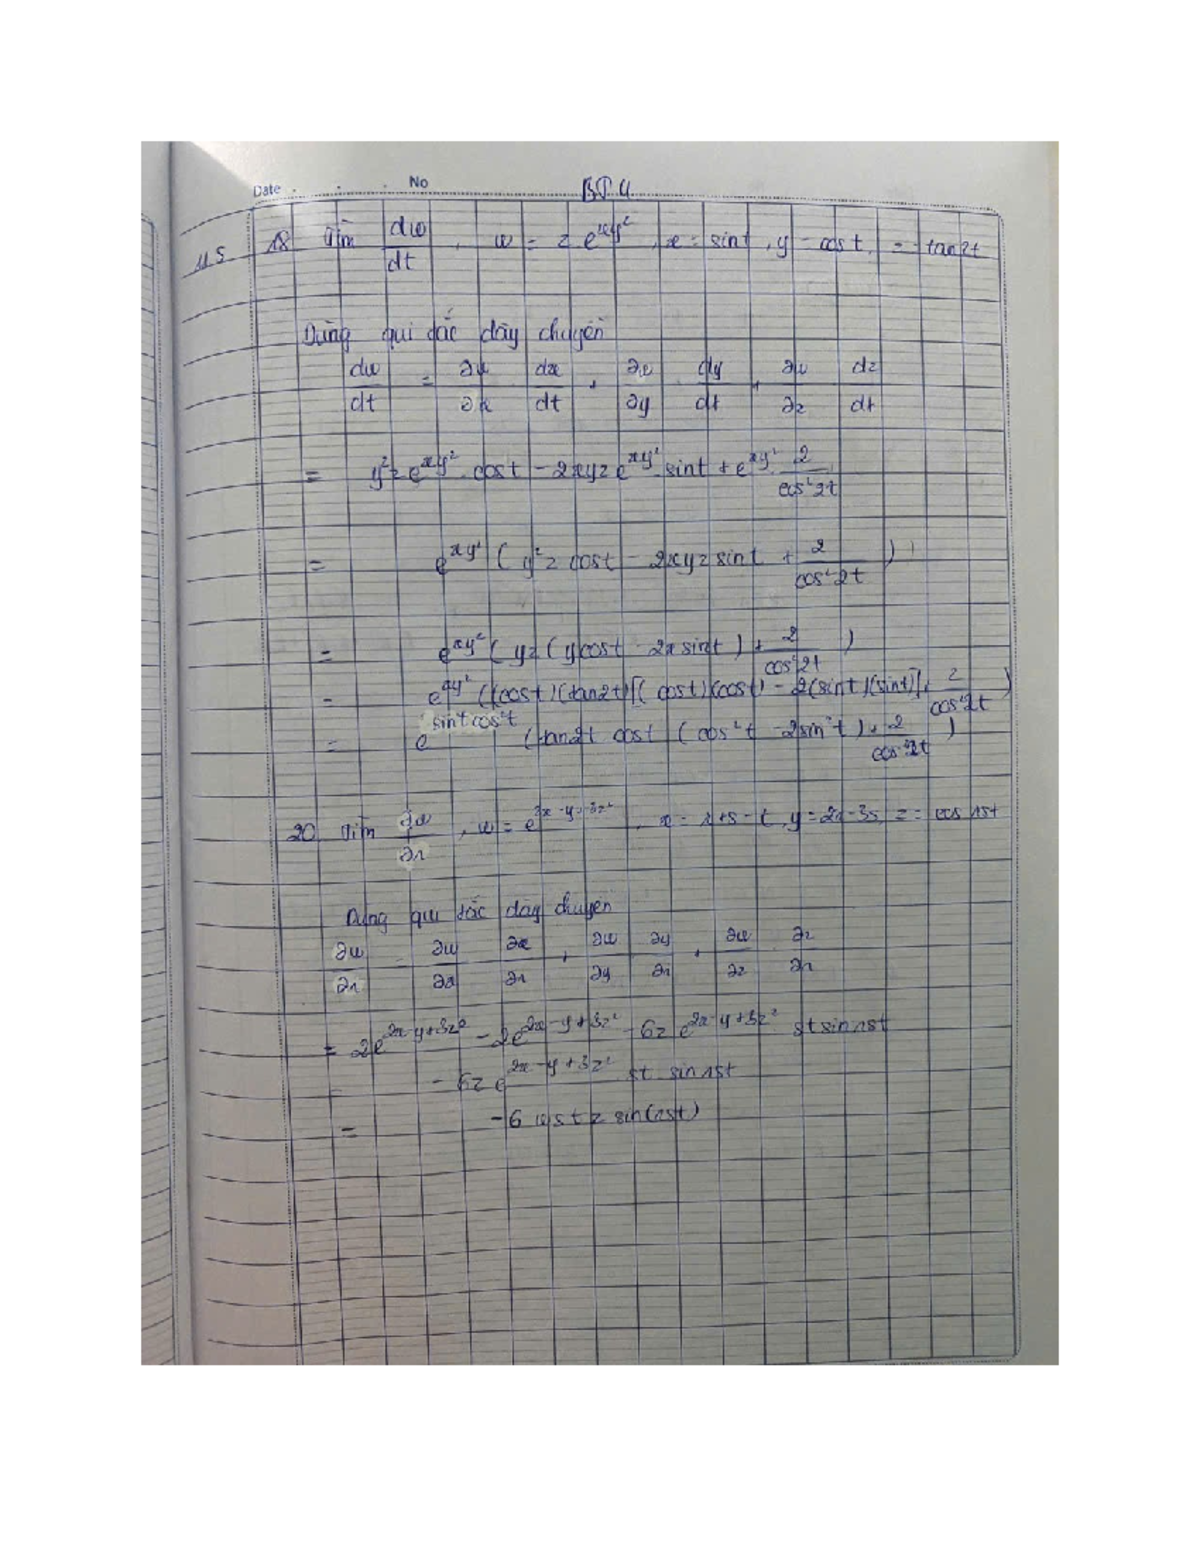 Date . . . No BT 4
11.5 18 Tìm dw/dt , w = z e^{xy²} , x = sin t , y = cos t , = tan 2t
Dùng qui tắc dây chuyền
dw/dt = ∂w/∂x dx/dt + ∂w/∂y dy/dt + ∂w/∂z dz/dt
= y²z e^{xy²} . cos t - 2xyz e^{xy²} sin t + e^{xy²} . 2/cos²2t
= e^{xy²} ( y²z cos t - 2xyz sin t + 2/cos²2t )
= e^{xy²} ( yz ( y cos t - 2x sin t ) + 2/cos²2t )
= e^{xy²} ((cos t)(tan 2t)[(cos t)(cos t) - 2(sin t)(sin t)] + 2/cos²2t )
= e^{sin t cos²t} (tan 2t cos t ( cos²t - 2 sin²t ) + 2/cos²2t )
20 Tìm ∂w/∂r , w = e^{2x - y + 3z²} , x = r + s - t , y = 2r - 3s , z = cos rst
Dùng qui tắc dây chuyền
∂w/∂r ∂w/∂x ∂x/∂r + ∂w/∂y ∂y/∂r + ∂w/∂z ∂z/∂r
= 2e^{2x - y + 3z²} - 2e^{2x - y + 3z²} - 6z e^{2x - y + 3z²} st sin rst
= - 6z e^{2x - y + 3z²} st sin rst
= - 6 st z sin(rst)